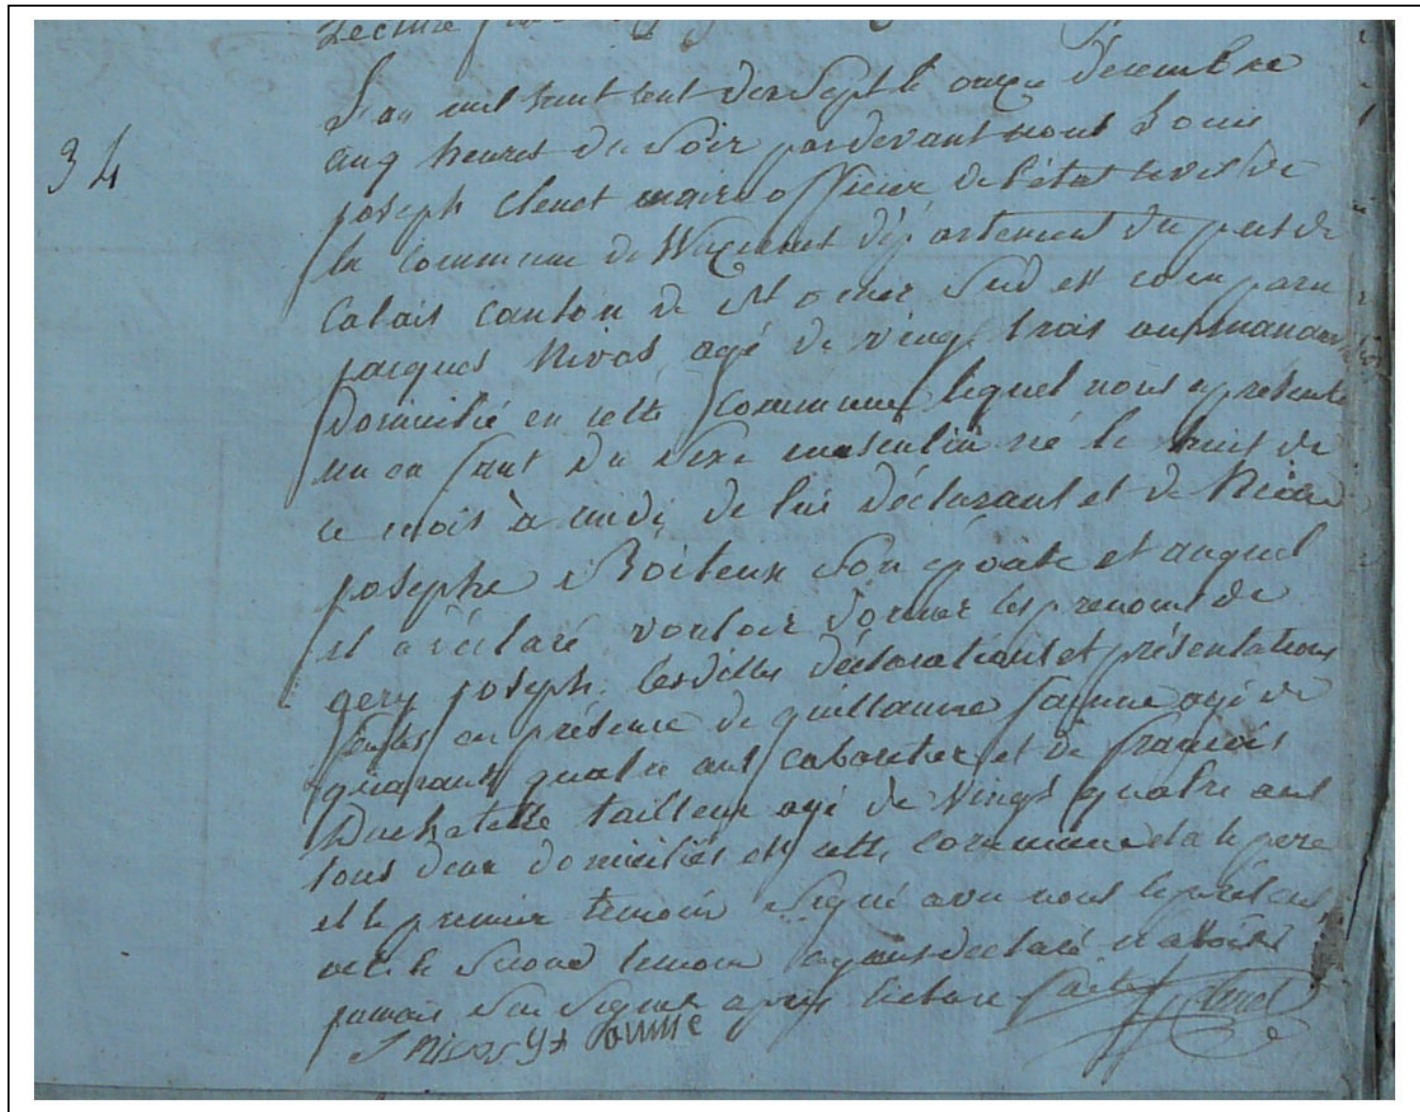 Lecture
34
L'an mil huit cent dix Sept le onze decembre
cinq heures du Soir pardevant nous Louis
joseph Clenet maire officier de l'état civil de
la Commune de département du pas de
Calais canton de St omer Sud est comparu
jacques Nivos agé de vingt trois ans
Domicilié en cette Commune lequel nous a présenté
un enfant du Sexe masculin né le huit de
ce mois à midi de lui déclarant et de
josephe Boiteux Son epouse et auquel
il a déclaré vouloir donner les prenoms de
gery joseph. lesdittes déclarations et présentations
faites en présence de guillaume agé de
quarante quatre ans cabaretier et de françois
Duchatelle tailleur agé de Vingt quatre ans
tous deux domiciliés en cette commune et a le pere
et le premier temoin Signé avec nous le présent
acte le Second temoin ayant declaré n'avoir
jamais Sçu Signer après lecture faite Clenet
J nivos